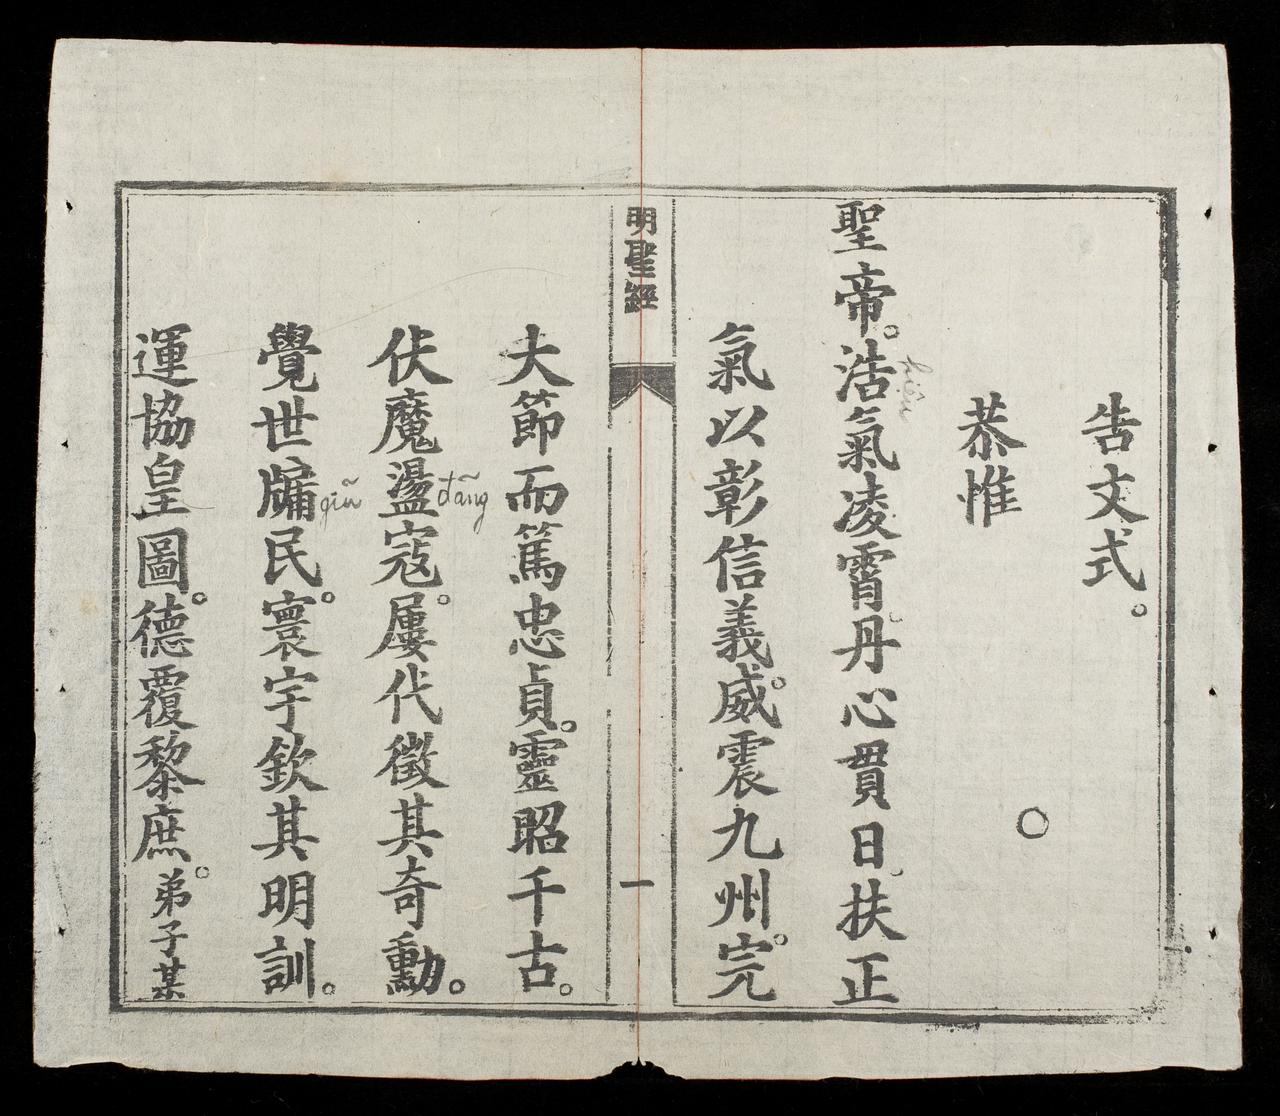 告文式。
恭惟
聖帝。浩氣凌霄。丹心貫日。扶正
氣以彰信義。威震九州。完
明聖經
一
大節而篤忠貞。靈昭千古。
伏魔盪寇。屢代徵其奇勳。
đãng
覺世牗民。寰宇欽其明訓。
giũ
運協皇圖。德覆黎庶。弟子某